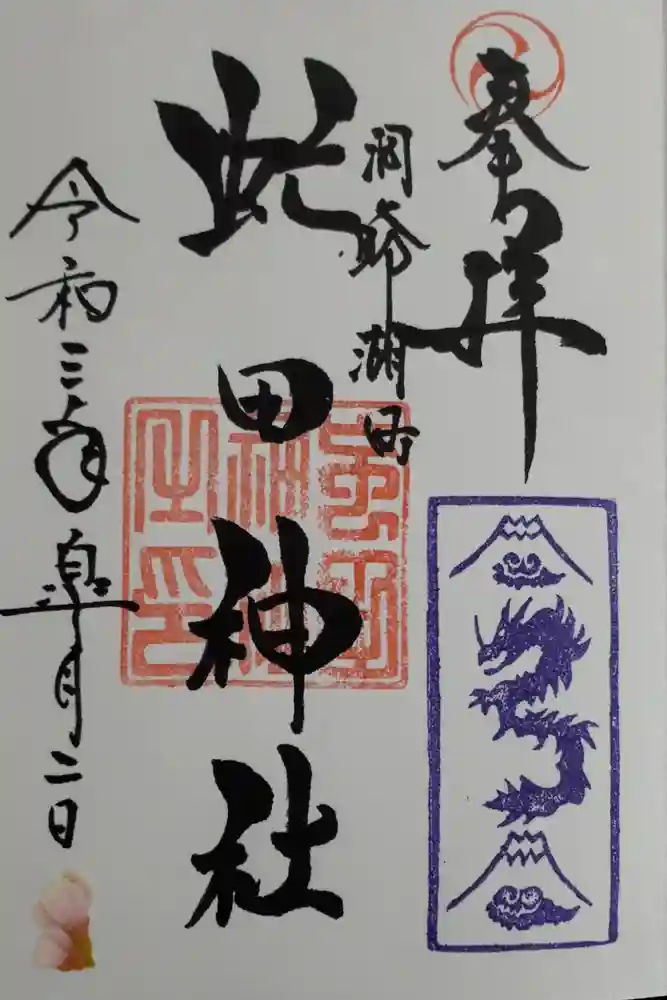 奉拝
洞爺湖町
虻田神社
令和三年皐月二日